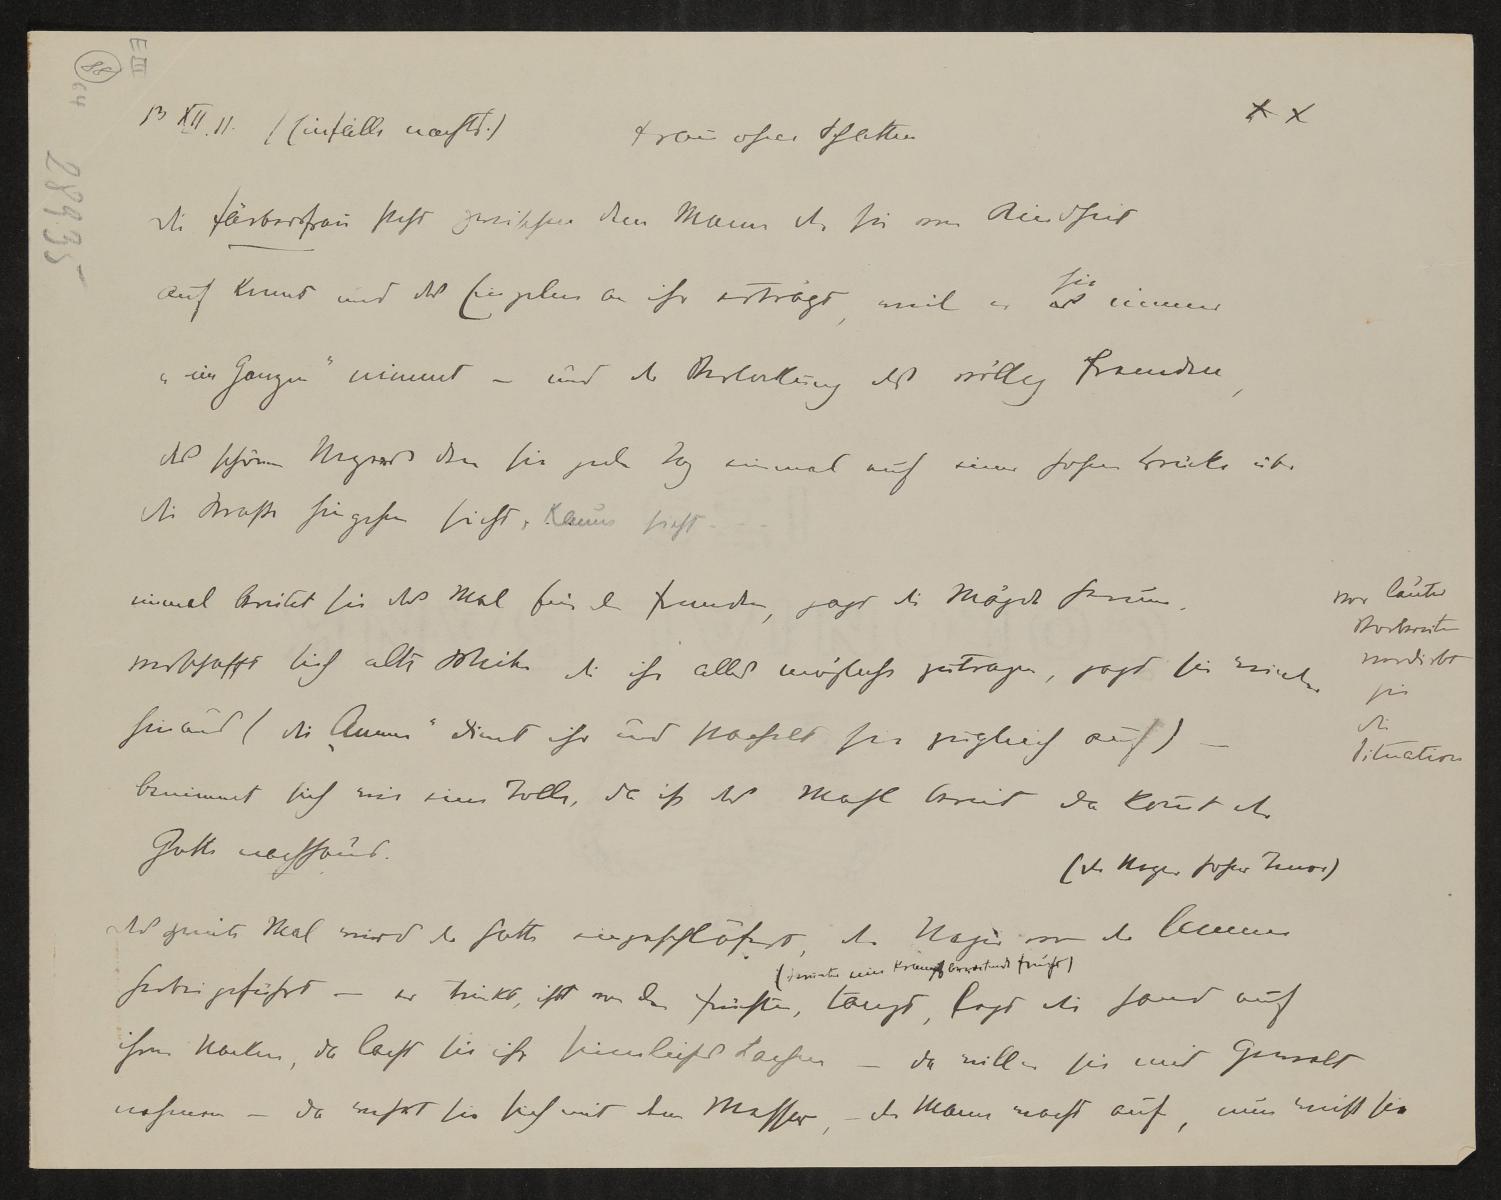 E III
88
64
28935
13 XII. 11. (Einfälle nachts.) Frau ohne Schatten
die Färbersfrau steht zwischen dem Mann der sie von Kindheit
auf kennt und das Einzelne an ihr erträgt, weil er sie immer
„im Ganzen" nimmt – und der Verlockung des völlig Fremden,
des schönen Negers den sie jeden Tag einmal auf einer hohen Brücke über
die Strasse hingehen sieht.
einmal bereitet sie das Mal für den Fremden, jagt die Mägde herum,
verschafft sich alte Weiber die ihr alles mögliche zutragen, jagt sie wieder
hinaus (die „Amme" dient ihr und stachelt sie zugleich auf) –
benimmt sich wie eine Tolle, da ist das Mahl bereit da kommt der
Gatte nachhaus.
vor lauter
Vorbereiten
verdirbt
sie
die
Situation
(der Neger hoher Tenor)
das zweite Mal wird der Gatte eingeschläfert, der Neger von der Amme
(darunter eine Krampf erweckende Frucht)
herbeigeführt – er trinkt, isst von den Früchten, tanzt, legt die Hand auf
ihren Nacken, da lacht sie ihr sinnliches Lachen – da will er sie mit Gewalt
nehmen – da wehrt sie sich mit dem Messer, – der Mann wacht auf, nun wirft sie